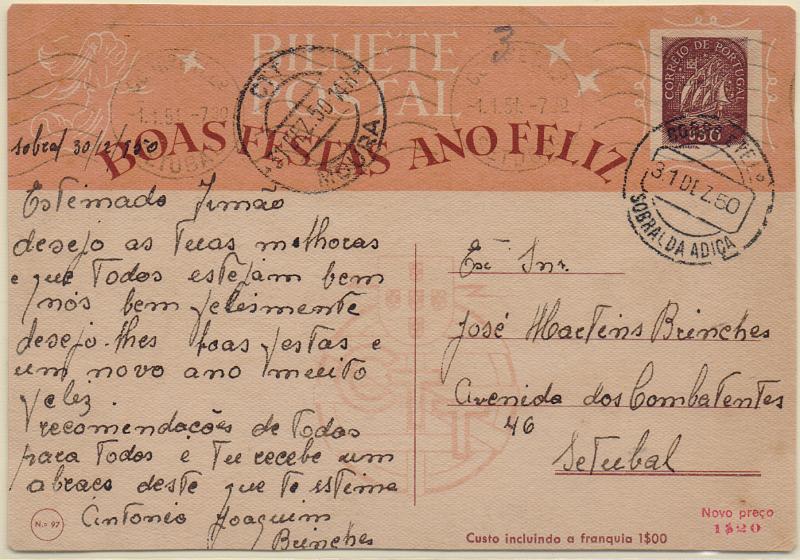 BILHETE
POSTAL
3
BOAS FESTAS ANO FELIZ
CORREIO DE PORTUGAL
CTF
31 DEZ 50
MOURA
-1.1.51.-7
-1.1.51.-7
31 DEZ.50
SOBRAL DA ADIÇA
sobral 30/2/150
Estimado Irmao
desejo as tuas milhoras
e que todos estejam bem
nós bem felismente
desejo-lhes boas festas e
um novo ano muito
feliz
recomendações de todos
para todos e tu recebe um
abraco deste que te estima
Antonio Joaquim
Brinches
Exº Snr.
José Martins Brinches
Avenida dos Combatentes
46
Setubal
CTT
N.º 97
Custo incluindo a franquia 1$00
Novo preço
1$20